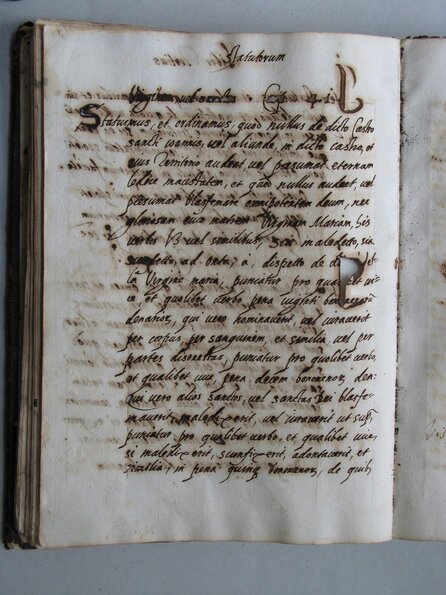 Statutorum
Statuimus, et ordinamus, quod nullus de dicto Castro
sancti vel aliunde, in dicto castro, et
eius Territorio audeat, vel presumat eternam
ledere maiestatem, et quod nullus audeat, vel
presumat blasfemare omnipotentem deum, nec
gloriosam eius matrem Virginem Mariam, his
verbis vel similibus, sia maledetto, sia
ad onta, a, dispetto de d et
la Vergine maria, puniatur pro qualibet vi-
ce, et quolibet verbo, pena viginti bononenorum
denarior, qui vero nominaverit, vel iuraverit
per corpus, per sanguinem, et similia, vel per
partes disonestas, puniatur pro quolibet verbo,
et qualibet vice, pena decem bononenor, den:
Qui vero alios sanctos, vel sanctas dei blasfe-
maverit, maledixerit, vel iuraverit ut supr
puniatur pro quolibet verbo, et qualibet vice,
si maledixerit, et
similia, in pena quinq bononenor, de quib